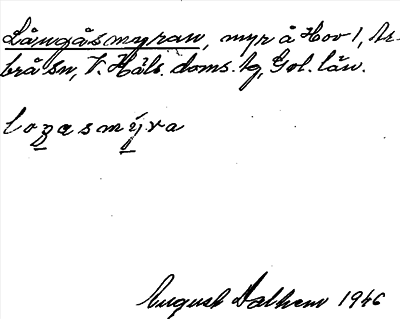 Långåsmyran, myr å Hov 1, Ar-
brå sn, V. Häls. doms. tg, Gvl. län.
lo̱gasmy̱ra
August Dalhem 1946